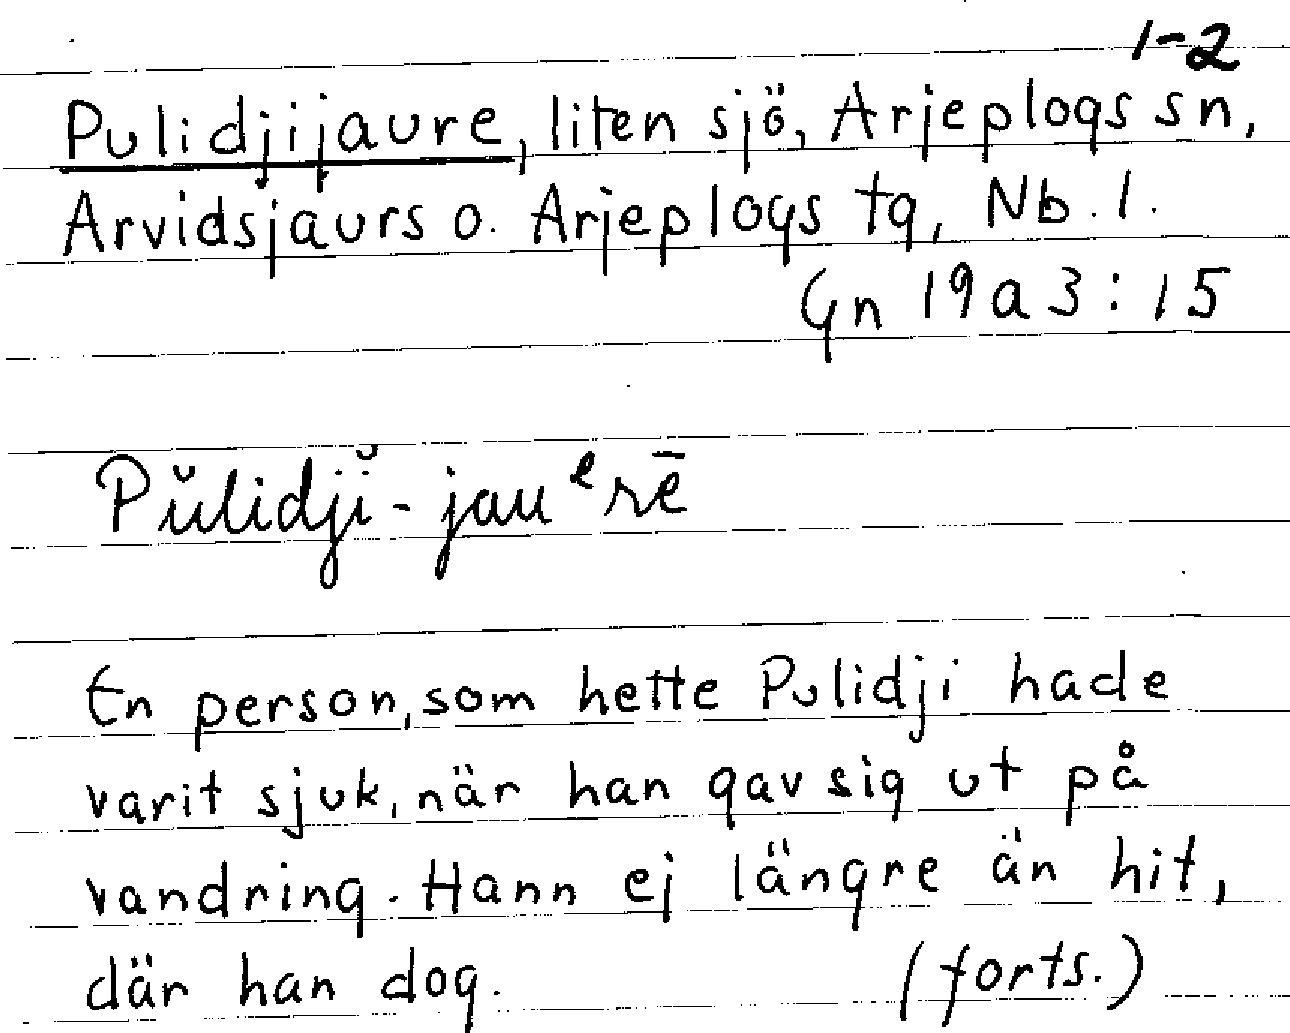 1-2
Pulidjijaure, liten sjö, Arjeplogs sn,
Arvidsjaurs o. Arjeplogs tg, Nb. l.
Gn 19a3:15
Pŭlidjĭ-jauᵉrē
En person, som hette Pulidji hade
varit sjuk, när han gav sig ut på
vandring. Hann ej längre än hit,
där han dog. (forts.)